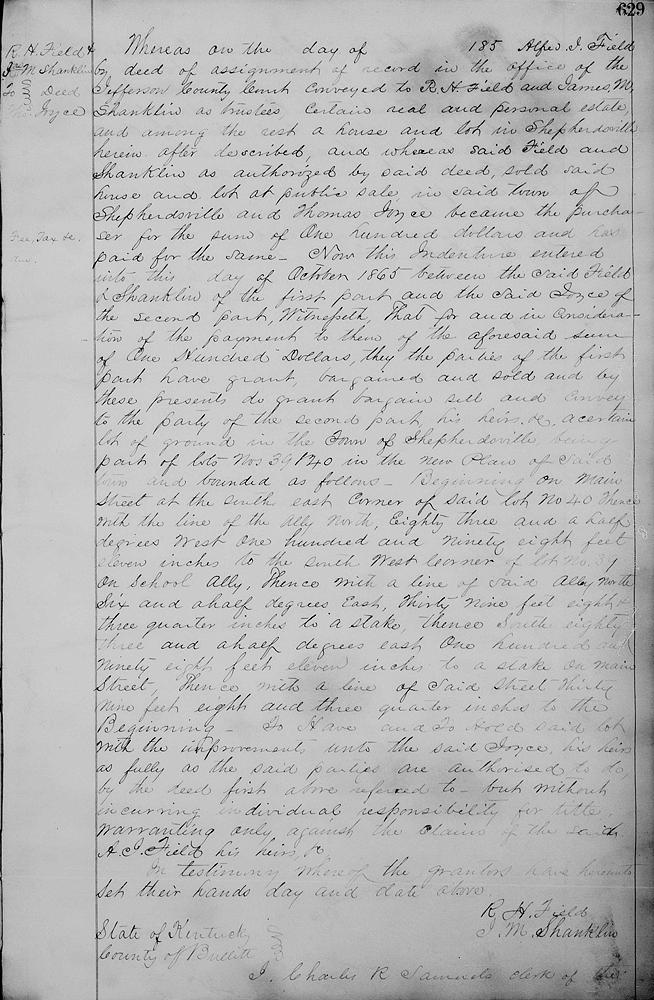 629
R. H. Field &
Jas M Shanklin
To Deed
Joyce
Whereas on the day of 185 Alfred J. Field
by deed of assignment of record in the office of the
Jefferson County Court conveyed to R. H Field and James, M,
Shanklin as trustees certain real and personal estate,
and among the rest a house and lot in Shepherdsville
herein after described, and whereas said Field and
Shanklin as authorized by said deed, sold said
house and lot at public sale, in said town of
Shepherdsville and Thomas Joyce became the purcha-
Fee, Tax &c.
ser for the sum of One hundred dollars and has
paid for the same - Now this Indenture entered
into this day of October 1865 between the said Field
& Shanklin of the first part and the said Joyce of
the second part, Witnesseth, That for and in considera-
tion of the payment to them of the aforesaid sum
of One Hundred Dollars, they the parties of the first
part have grant, bargained and sold and by
these presents do grant bargain sell and convey
to the party of the second part his heirs &c, a certain
lot of ground in the Town of Shepherdsville being
part of lots Nos 39 & 40 in the new Plan of said
town and bounded as follows - Beginning on Main
Street at the south east corner of said lot No 40 thence
with the line of the Ally North, Eighty three and a half
degrees West One hundred and Ninety eight feet
eleven inches to the south West corner of lot No. 39
on School Ally, Thence with a line of said Alley North
Six and a half degrees East, Thirty Nine feet eight &
three quarter inches to a stake, thence South eighty
three and a half degrees east One hundred and
Ninety eight feet eleven inches to a stake on main
Street, Thence with a line of said street thirty
nine feet eight and three quarter inches to the
Beginning - To Have and To Hold said lot
with the improvements unto the said Joyce, his heirs
as fully as the said parties are authorised to do,
by the deed first above refered to - but without
incurring individual responsibility for title
warranting only against the claim of the said
A. J. Field his heirs, &c
In testimony whereof the grantors have hereunto
set their hands day and date above.
R. H. Field
J. M. Shanklin
State of Kentucky
County of Bullitt
I, Charles R Samuels clerk of the